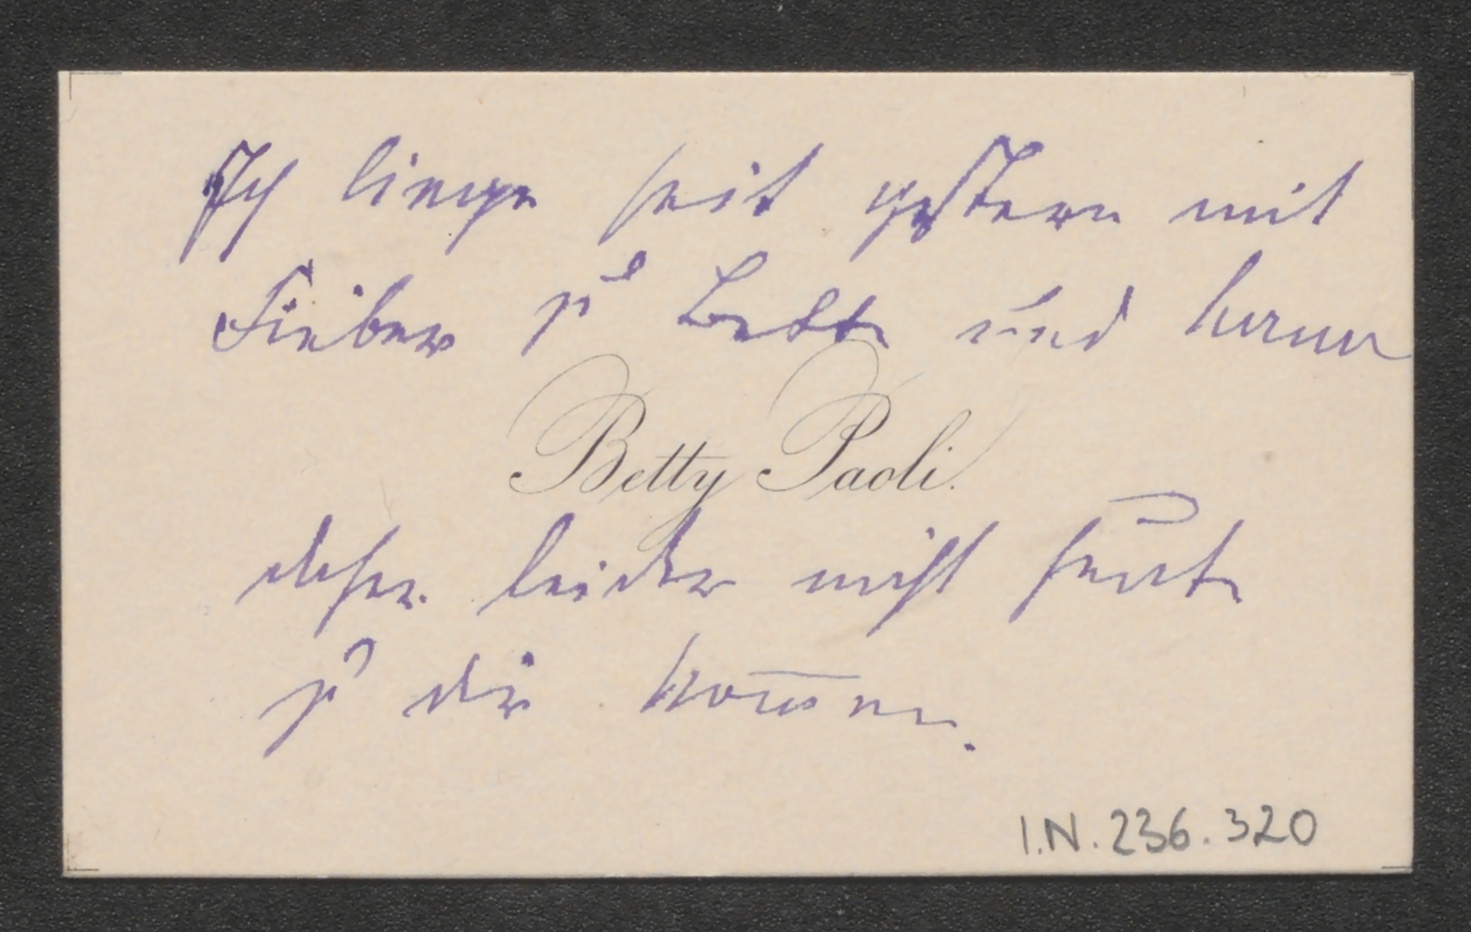 Ich liege seit gestern mit
Fieber zu Bette und kann
Betty Paoli.
daher leider nicht heute
zu dir kom̅en.
I.N. 236.320